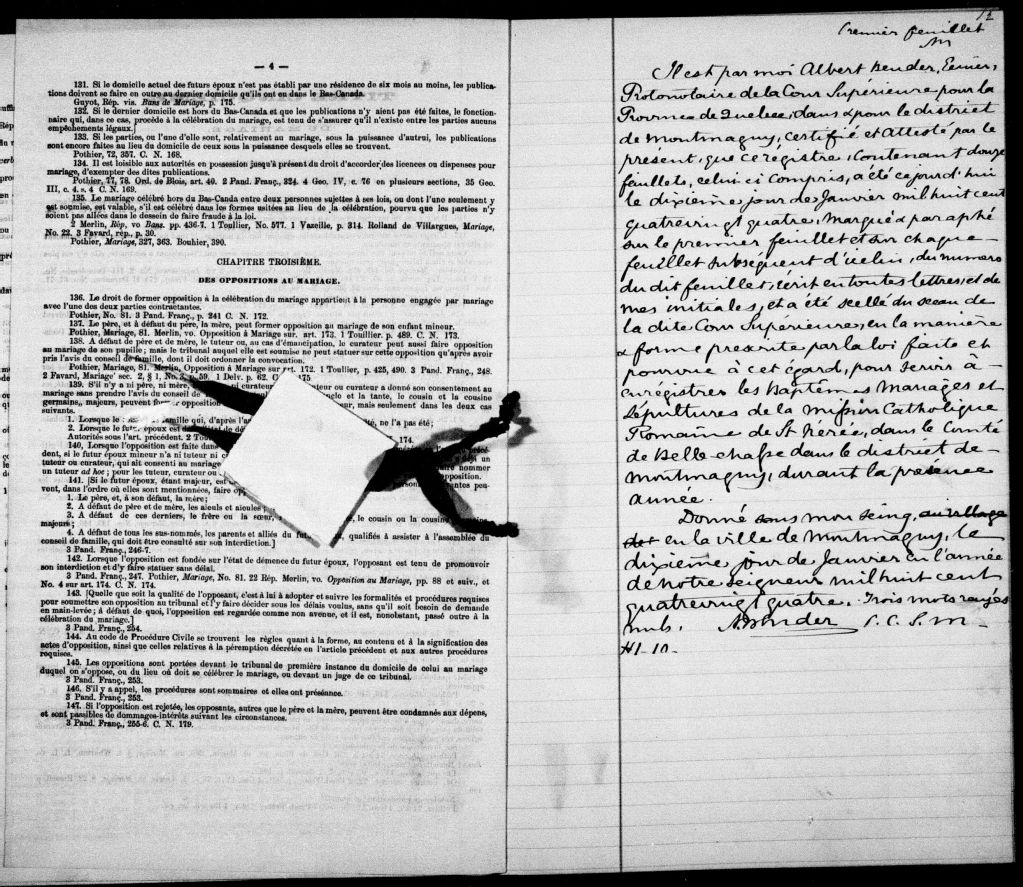 — 4 —
131. Si le domicile actuel des futurs époux n'est pas établi par une résidence de six mois au moins, les publica-
tions doivent se faire en outre au dernier domicile qu'ils ont eu dans le Bas-Canada.
Guyot, Rép. vis. Bans de Mariage, p. 175.
132. Si le dernier domicile est hors du Bas-Canada et que les publications n'y aient pas été faites, le fonction-
naire qui, dans ce cas, procède à la célébration du mariage, est tenu de s'assurer qu'il n'existe entre les parties aucuns
empêchements légaux.]
133. Si les parties, ou l'une d'elle sont, relativement au mariage, sous la puissance d'autrui, les publications
sont encore faites au lieu du domicile de ceux sous la puissance desquels elles se trouvent.
Pothier, 72, 357. C. N. 168.
134. Il est loisible aux autorités en possession jusqu'à présent du droit d'accorder des licences ou dispenses pour
mariage, d'exempter des dites publications.
Pothier, 77, 78. Ord. de Blois, art. 40. 2 Pand. Franç., 324. 4 Geo. IV, c. 76 en plusieurs sections, 35 Geo.
III, c. 4. s. 4 C. N. 169.
135. Le mariage célébré hors du Bas-Canada entre deux personnes sujettes à ses lois, ou dont l'une seulement y
est soumise, est valable, s'il est célébré dans les formes usitées au lieu de la célébration, pourvu que les parties n'y
soient pas allées dans le dessein de faire fraude à la loi.
2 Merlin, Rép, vo Bans. pp. 436-7. 1 Toullier, No. 577. 1 Vazeille, p. 314. Rolland de Villargues, Mariage,
No. 22. 3 Favard, rép., p. 30.
Pothier, Mariage, 327, 363. Bouhier, 390.
CHAPITRE TROISIÈME.
DES OPPOSITIONS AU MARIAGE.
136. Le droit de former opposition à la célébration du mariage appartient à la personne engagée par mariage
avec l'une des deux parties contractantes.
Pothier, No. 81. 3 Pand. Franç., p. 241 C. N. 172.
137. Le père, et à défaut du père, la mère, peut former opposition au mariage de son enfant mineur.
Pothier, Mariage, 81. Merlin, vo. Opposition à Mariage sur. art. 173. 1 Touillier. p. 489. C. N. 173.
138. A défaut de père et de mère, le tuteur ou, au cas d'émancipation, le curateur peut aussi faire opposition
au mariage de son pupille; mais le tribunal auquel elle est soumise ne peut statuer sur cette opposition qu'après avoir
pris l'avis du conseil de famille, dont il doit ordonner la convocation.
Pothier, Mariage, 81. Merlin, Opposition à Mariage sur art. 172. 1 Toullier, p. 425, 490. 3 Pand. Franç., 248.
2 Favard, Mariage' sec. 2, § 1, No. 59. 1 Delv. p. 62. C. 175
139. S'il n'y a ni père, ni mère, ni curateur ou curateur a donné son consentement au
mariage sans prendre l'avis du conseil de oncle et la tante, le cousin et la cousine
germains, majeurs, peuvent former opposition mais seulement dans les deux cas
suivants.
1. Lorsque le famille qui, d'après l'a ne l'a pas été;
2. Lorsque le futur époux est
Autorités sous l'art. précédent. 2 Tou 174.
140. Lorsque l'opposition est faite dans
dent, si le futur époux mineur n'a ni tuteur ni un
tuteur ou curateur, qui ait consenti au mariage faire nommer
un tuteur ad hoc; pour les tuteur, curateur ou opposition.
141. [Si le futur époux, étant majeur, est peu-
vent, dans l'ordre où elles sont mentionnées, faire
1. Le père, et, à son défaut, la mère;
2. A défaut de père et de mère, les aïeuls et aïeules;
3. A défaut de ces derniers, le frère ou la sœur, le cousin ou la cousine
majeurs;
4. A défaut de tous les sus-nommés, les parents et alliés du qualifiés à assister à l'assemblée du
conseil de famille, qui doit être consulté sur son interdiction.]
3 Pand. Franç., 246-7.
142. Lorsque l'opposition est fondée sur l'état de démence du futur époux, l'opposant est tenu de promouvoir
son interdiction et d'y faire statuer sans délai.
3 Pand. Franç., 247. Pothier, Mariage, No. 81. 22 Rép. Merlin, vo. Opposition au Mariage, pp. 88 et suiv., et
No. 4 sur art. 174. C. N. 174.
143. [Quelque soit la qualité de l'opposant, c'est à lui à adopter et suivre les formalités et procédures requises
pour soumettre son opposition au tribunal et l'y faire décider sous les délais voulus, sans qu'il soit besoin de demande
en main-levée; à défaut de quoi, l'opposition est regardée comme non avenue, et il est, nonobstant, passé outre à la
célébration du mariage.]
3 Pand. Franç., 254.
144. Au code de Procédure Civile se trouvent les règles quant à la forme, au contenu et à la signification des
actes d'opposition, ainsi que celles relatives à la péremption décrétée en l'article précédent et aux autres procédures
requises.
145. Les oppositions sont portées devant le tribunal de première instance du domicile de celui au mariage
duquel on s'oppose, ou du lieu où doit se célébrer le mariage, ou devant un juge de ce tribunal.
3 Pand. Franç., 253.
146. S'il y a appel, les procédures sont sommaires et elles ont préséance.
3 Pand. Franç., 253.
147. Si l'opposition est rejetée, les opposants, autres que le père et la mère, peuvent être condamnés aux dépens,
et sont passibles de dommages-intérêts suivant les circonstances.
3 Pand. Franç., 255-6. C. N. 179.
Premier feuillet
Il est par moi Albert Bender, Ecuier,
Protonotaire de la Cour Supérieure pour la
Province de Quebec, dans & pour le district
de Montmagny, Certifié et Attesté par le
présent, que ce registre, Contenant douze
feuillets, celui ci Compris, a été ce jourd'hui
le dixième jour de Janvier mil huit cent
quatrevingt quatre, Marqué & paraphé
sur le premier feuillet et sur chaque
feuillet subsequent d'icelui, du numero
du dit feuillet, écrit en toutes lettres, et de
mes initiales, et a été scellé du sceau de
la dite Cour Supérieure, en la manière
& forme prescrite par la loi faite et
pourvue à cet égard, pour servir à
enrégistrer les Baptêmes Mariages et
Sépultures de la mission Catholique
Romaine de St Nérée, dans le Comté
de Bellechasse dans le district de
Montmagny, durant la présente
année.
Donné sous mon seing, au village
en la ville de Montmagny, le
dixième jour de Janvier en l'année
de notre seigneur mil huit cent
quatrevingt quatre. Trois mots rayés
nuls. A Bender P. C. S. M
#1-10-